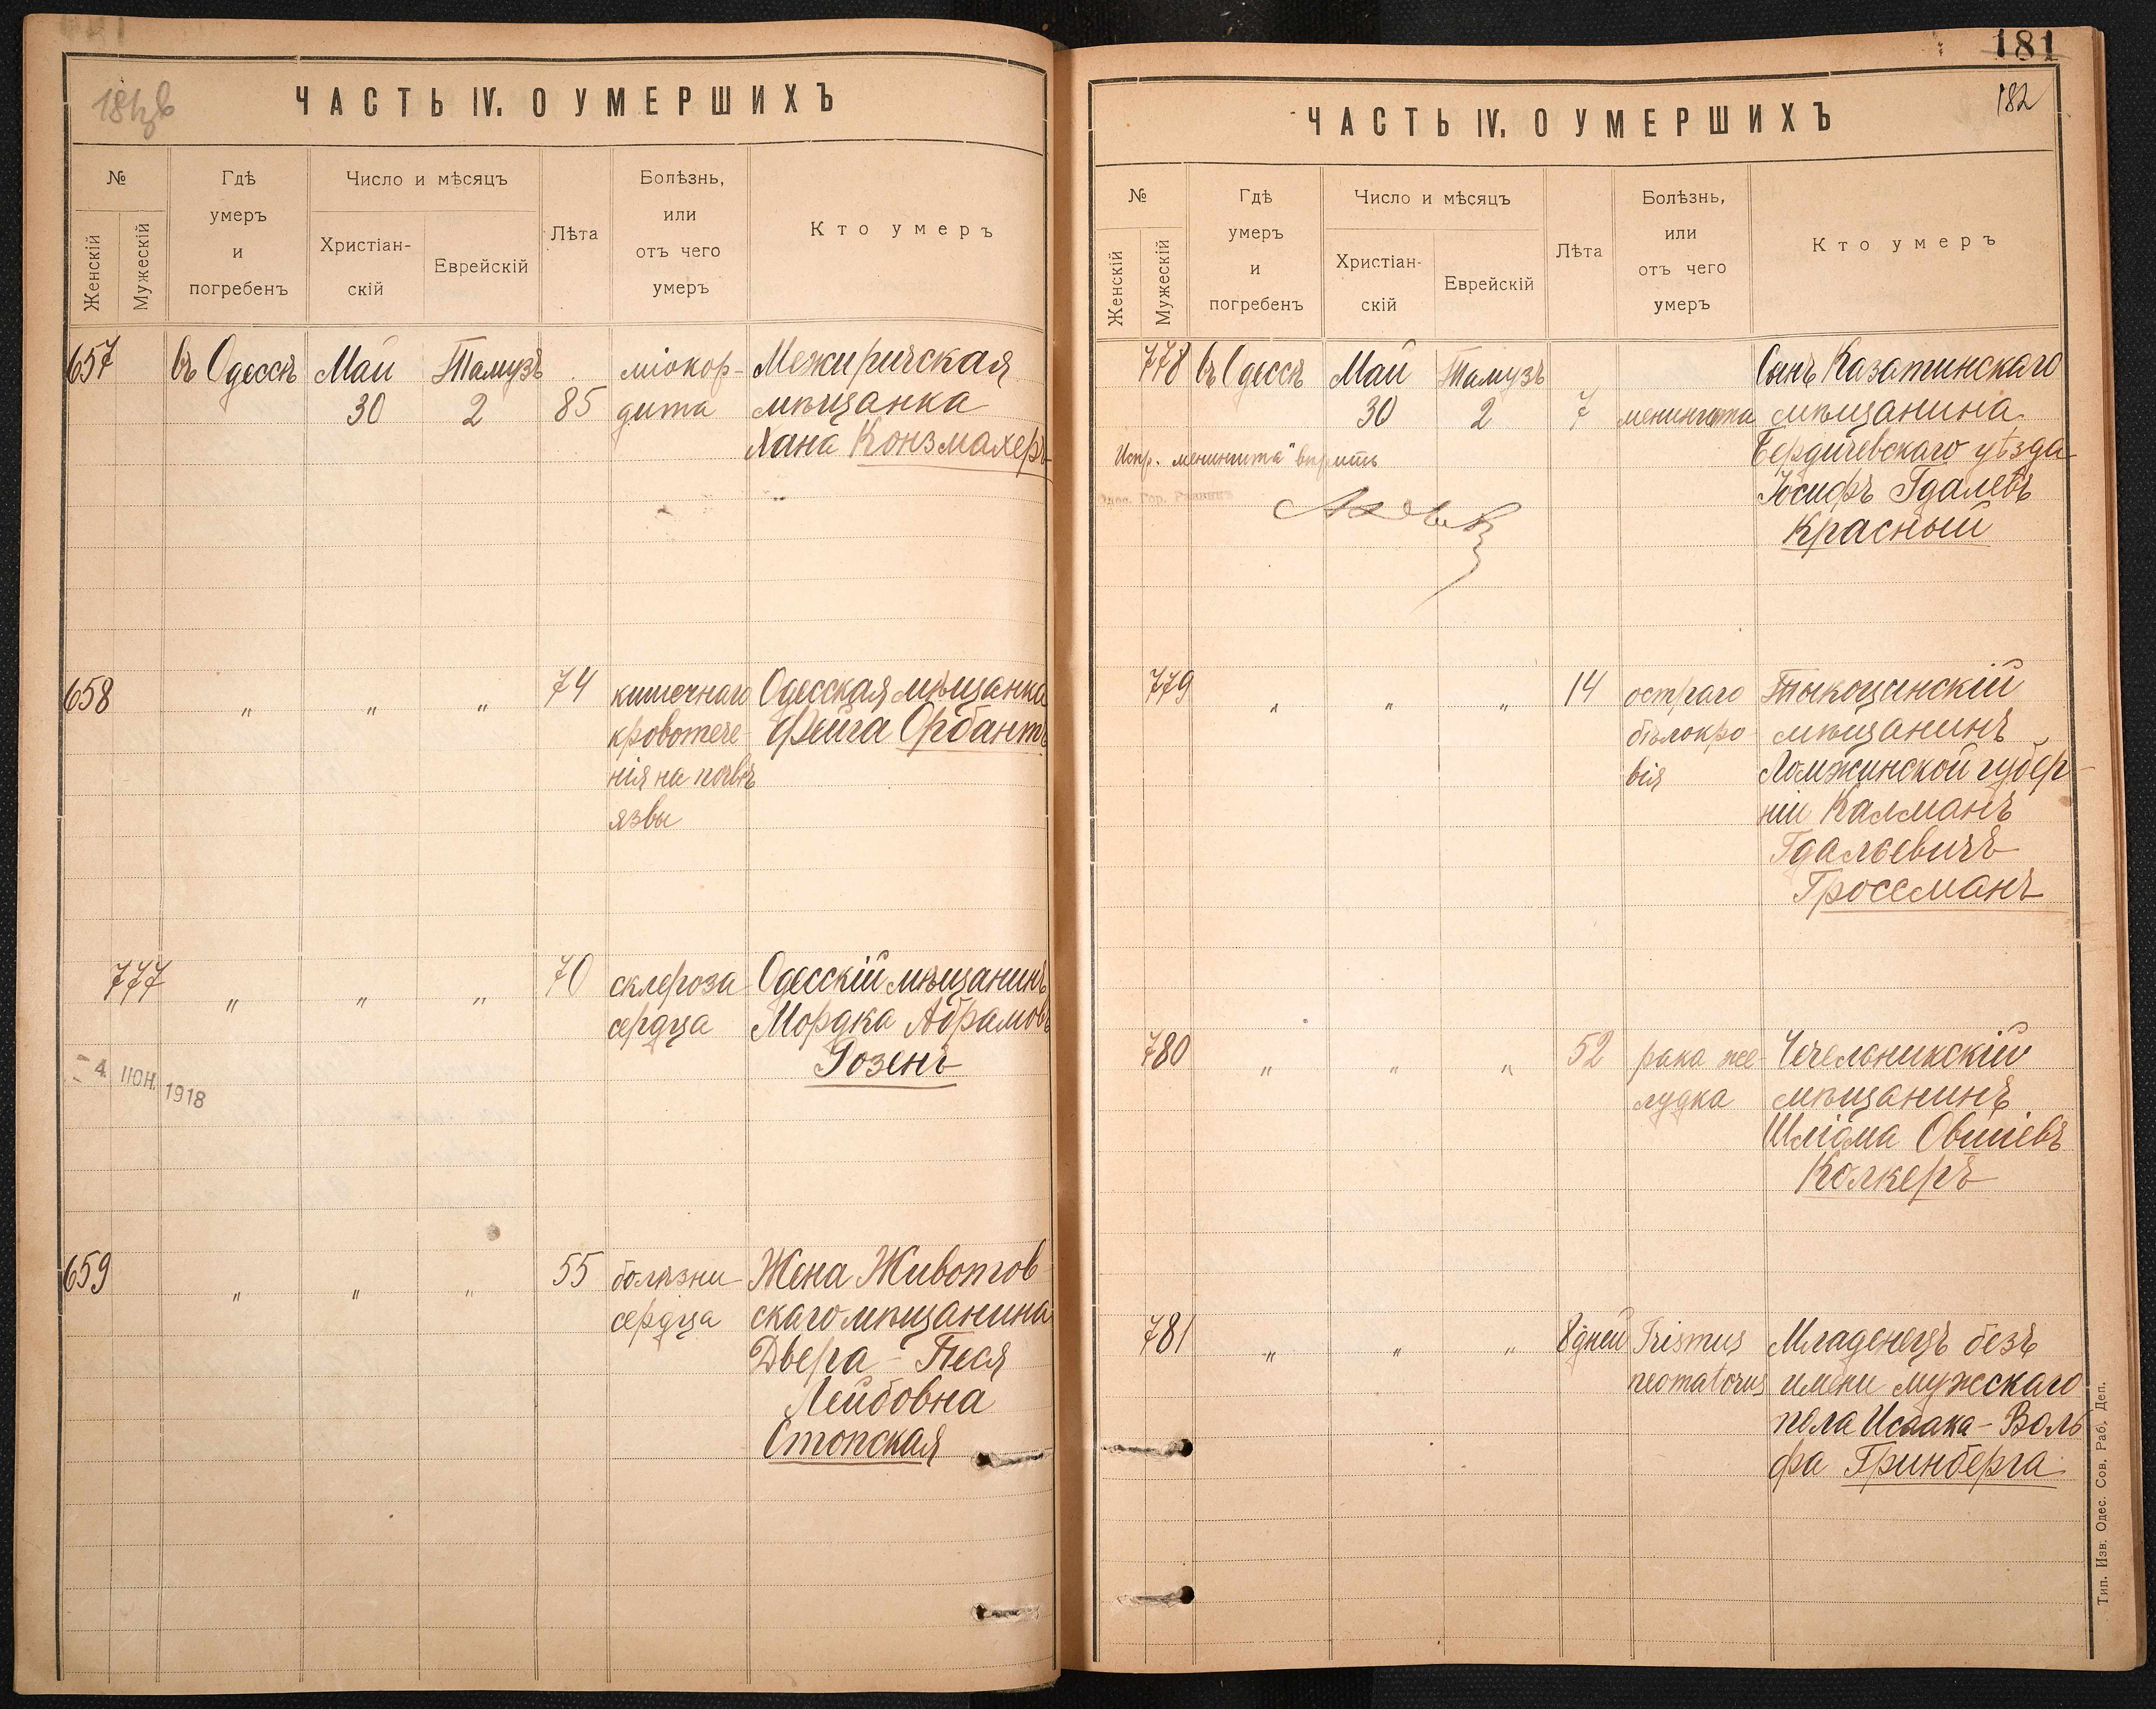 ЧАСТЬ IV. О УМЕРШИХЪ
№
Женскій
Мужескій
Гдѣ
умеръ
и
погребенъ
Число и мѣсяцъ
Христіан-
скій
Еврейскій
Лѣта
Болѣзнь,
или
отъ чего
умеръ
Кто умеръ
657 въ Одессѣ Май Тамузъ міокор- Межиричская
30 2 85 дита мѣщанка
Хана Конзмахеръ
658 " " " 74 кишечнаго Одесская мѣщанка
кровотече- Фейга Орбантъ
нія на почвѣ
язвы
777 " " " 70 склероза Одесскій мѣщанинъ
сердца Мордка Абрамовъ
Розенъ
- 4. ІЮН. 1918
659 " " " 55 болѣзни Жена Животов-
сердца скаго мѣщанина
Двера - Песя
Лейбовна
Стопская
181
182
ЧАСТЬ IV. О УМЕРШИХЪ
№
Женскій
Мужескій
Гдѣ
умеръ
и
погребенъ
Число и мѣсяцъ
Христіан-
скій
Еврейскій
Лѣта
Болѣзнь,
или
отъ чего
умеръ
Кто умеръ
778 въ Одессѣ Май Тамузъ Сынъ Казатинскаго
30 2 7 менингита мѣщанина
Бердичевскаго уѣзда
Испр. "менингита" вѣрить
Одес. Гор. Раввинъ
Іосифъ Гдалевъ
Красный
779 " " " 14 остраго Тыкоцинскій
бѣлокро- мѣщанинъ
вія Ломжинской губер-
ніи Калманъ
Гдальевичъ
Гроссманъ
780 " " " 52 рака же- Чечельникскій
лудка мѣщанинъ
Шліома Овшіевъ
Колкеръ
781 " " " 8 дней Trismus Младенецъ безъ
neomatorus имени мужскаго
пола Исаака-Воль
фа Гринберга
Тип. Изв. Одес. Сов. Раб. Деп.